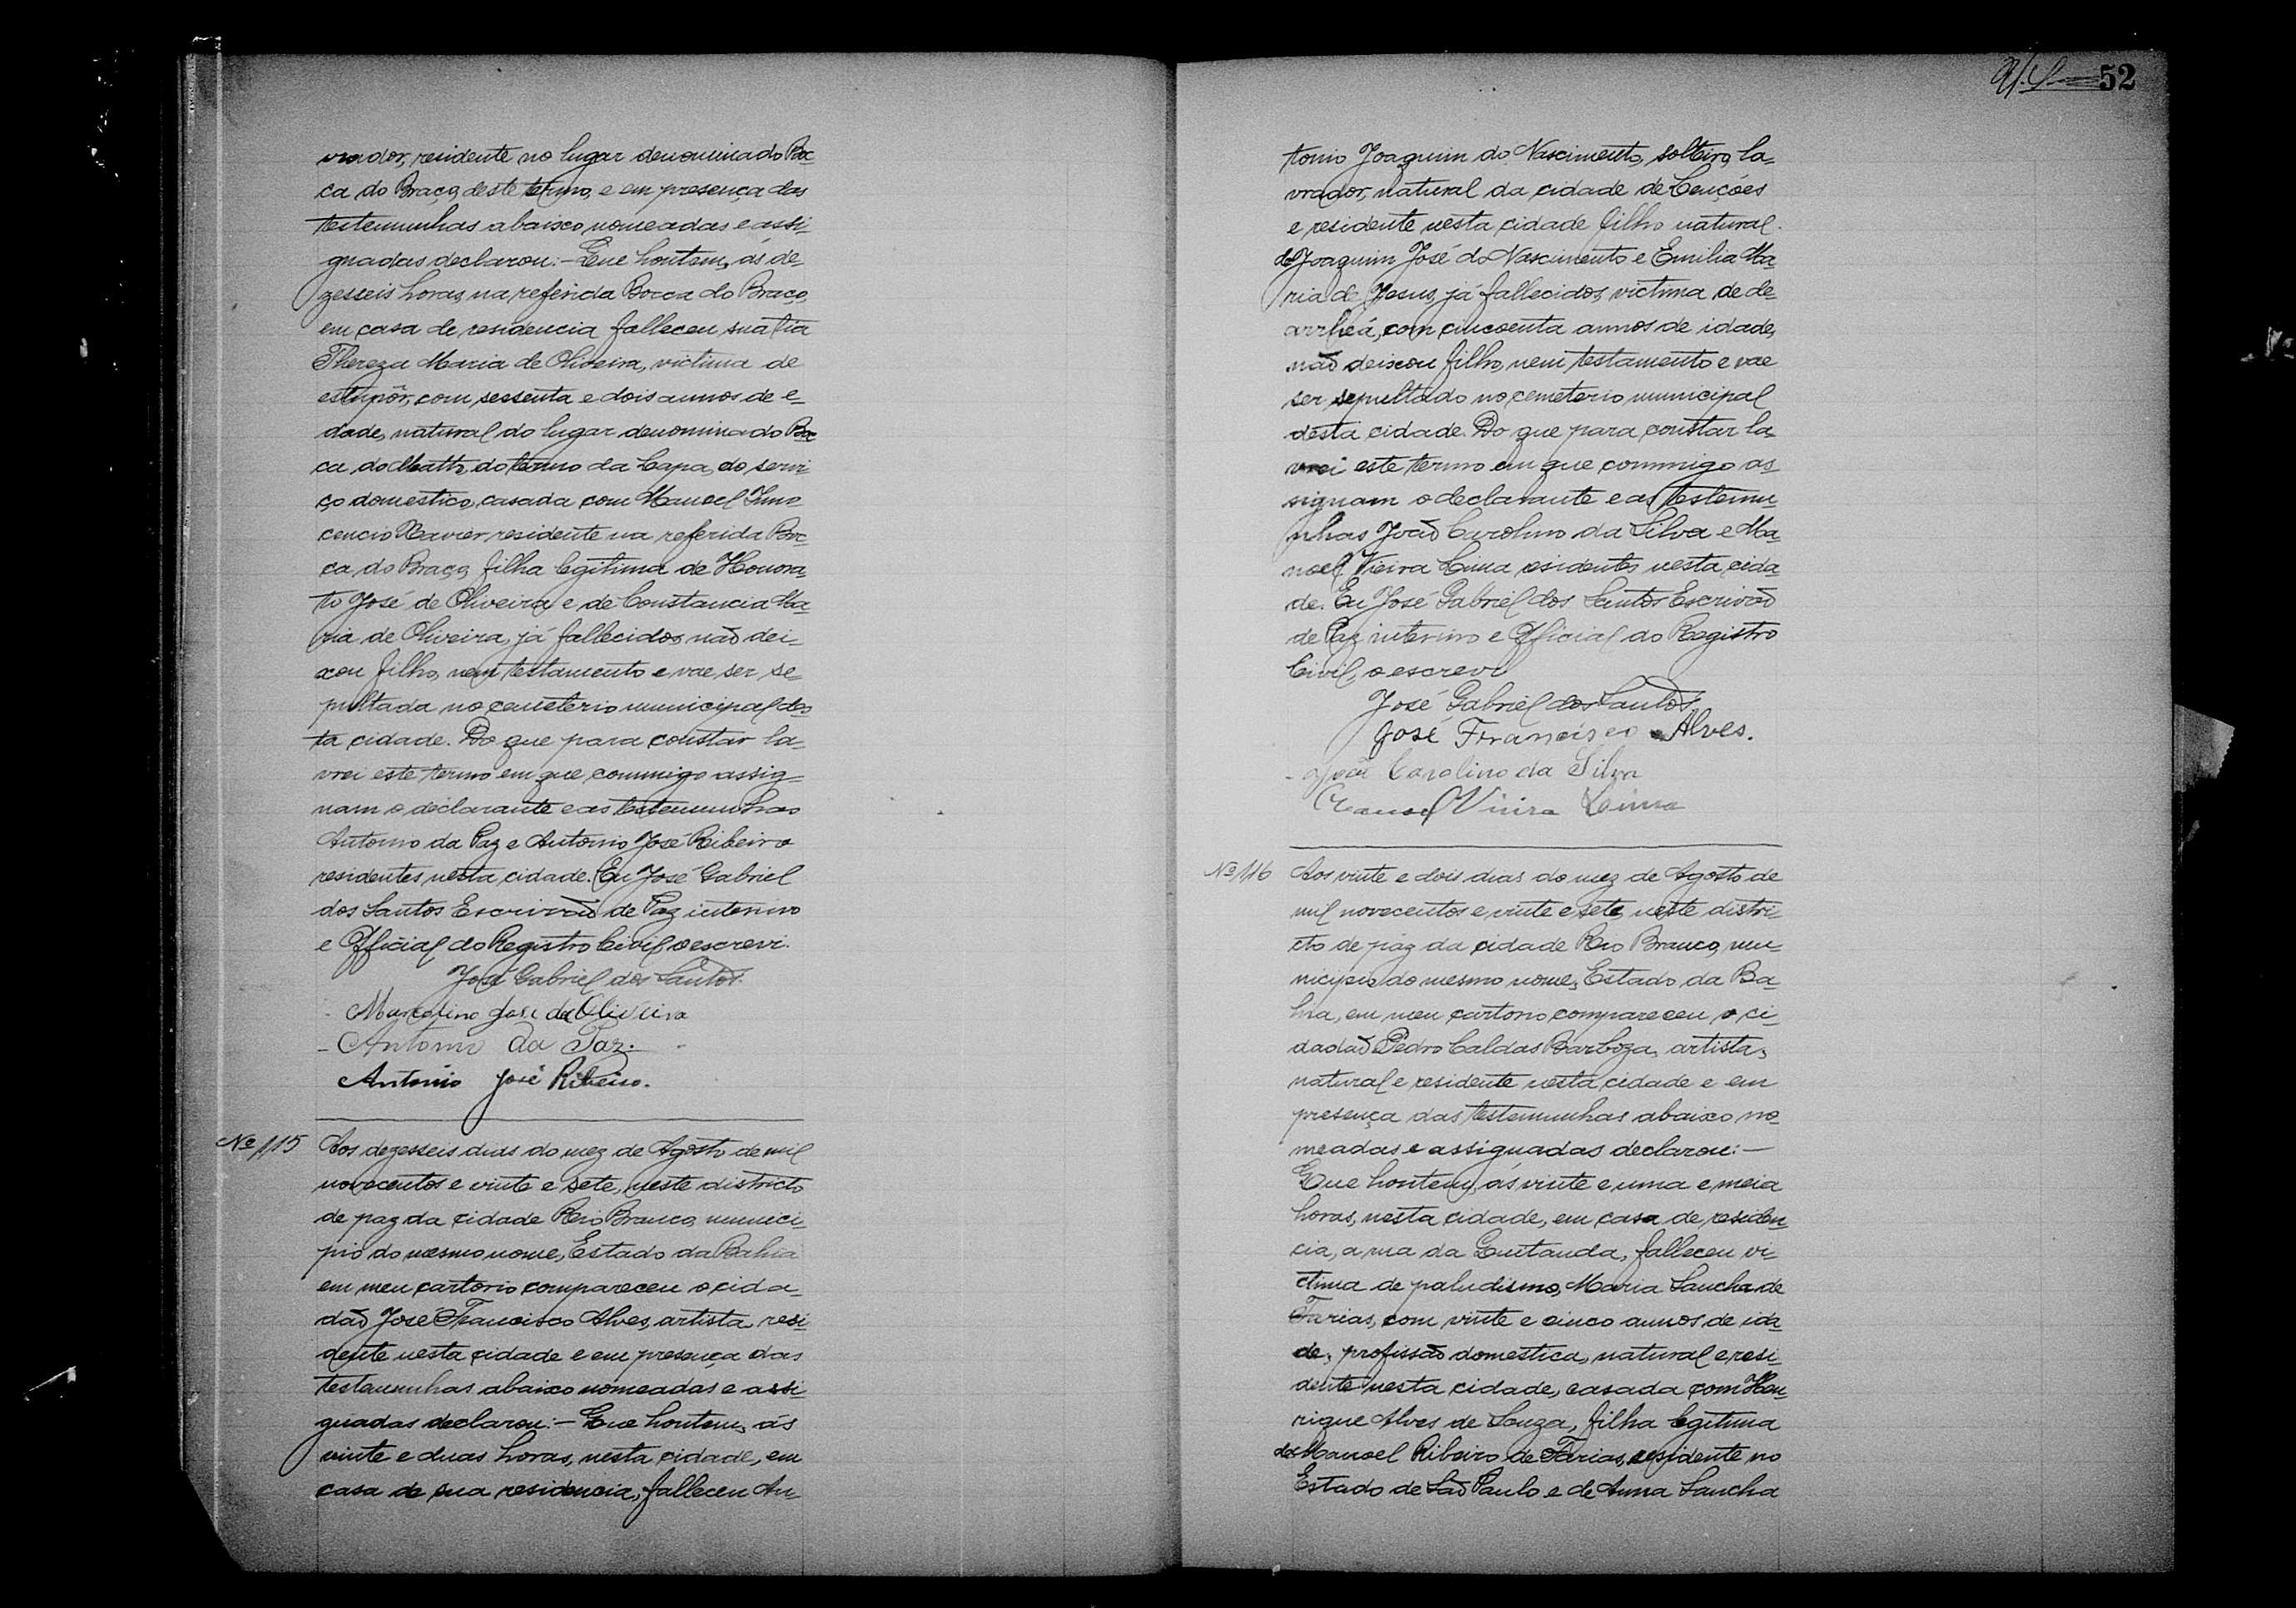 vrador, residente no lugar denominado Boc
ca do Braço, deste termo, e em presença das
testemunhas abaixo nomeadas e assi-
gnadas declarou:- Que hontem, ás de-
zesseis horas, na referida Bocca do Braço,
em casa de residencia falleceu sua tia
Thereza Maria de Oliveira, victima de
estupôr, com sessenta e dois annos de e-
dade, natural do lugar denominado Boc
ca do Matto, do termo da Lapa, do servi
ço domestico, casada com Manoel Inno
cencio Xavier, residente na referida Boc-
ca do Braço, filha legitima de Honora-
to José de Oliveira e de Constancia Ma-
ria de Oliveira, já fallecidos, não dei-
xou filho, nem testamento e vae ser se-
pultada no cemeterio municipal des-
ta cidade. Do que para constar la-
vrei este termo em que commigo assig-
nam o declarante e as testemunhas
Antonio da Paz e Antonio José Ribeiro
residentes nesta cidade. Eu José Gabriel
dos Santos Escrivão de Paz interino
e Official do Registro Civil, o escrevi.
José Gabriel dos Santos.
Marcolino José de Oliveira
Antonio da Paz.
Antonio José Ribeiro.
Nº 115 Aos dezesseis dias do mez de Agosto de mil
novecentos e vinte e sete, neste districto
de paz da cidade Rio Branco, munici-
pio do mesmo nome, Estado da Bahia
em meu cartorio compareceu o cida-
dão José Francisco Alves, artista, resi-
dente nesta cidade e em presença das
testemunhas abaixo nomeadas e assi-
gnadas declarou:- Que hontem, ás
vinte e duas horas, nesta cidade, em
casa de sua residencia, falleceu An-
52
tonio Joaquim do Nascimento, solteiro, la-
vrador, natural da cidade de Lençóes
e residente nesta cidade filho natural
de Joaquim José do Nascimento e Emilia Ma-
ria de Jesus, já fallecidos, victima de de-
arrheá, com cincoenta annos de idade,
não deixou filho, nem testamento e vae
ser sepultado no cemeterio municipal
desta cidade. Do que para constar la-
vrei este termo em que commigo as-
signam o declarante e as testemu-
nhas João Carolino da Silva e Ma-
noel Vieira Lima residentes nesta cida-
de. Eu José Gabriel dos Santos Escrivão
de Paz interino e Official do Registro
Civil, o escrevi
José Gabriel dos Santos,
José Francisco Alves.
João Carolino da Silva
Manoel Vieira Lima
Nº 116 Aos vinte e dois dias do mez de Agosto de
mil novecentos e vinte e sete, neste distri-
cto de paz da cidade Rio Branco, mu-
nicipio do mesmo nome, Estado da Ba-
hia, em meu cartorio compareceu o ci-
dadão Pedro Caldas Barboza, artista,
natural e residente nesta cidade e em
presença das testemunhas abaixo no-
meadas e assignadas declarou:-
Que hontem, ás vinte e uma e meia
horas, nesta cidade, em casa de residen-
cia, a rua da Quitanda, falleceu vi-
ctima de paludismo, Maria Sancha de
Farias, com vinte e cinco annos de ida-
de, profissão domestica, natural e resi-
dente nesta cidade, casada com Hen-
rique Alves de Souza, filha legitima
de Manoel Ribeiro de Farias, residente no
Estado de São Paulo e de Anna Sancha